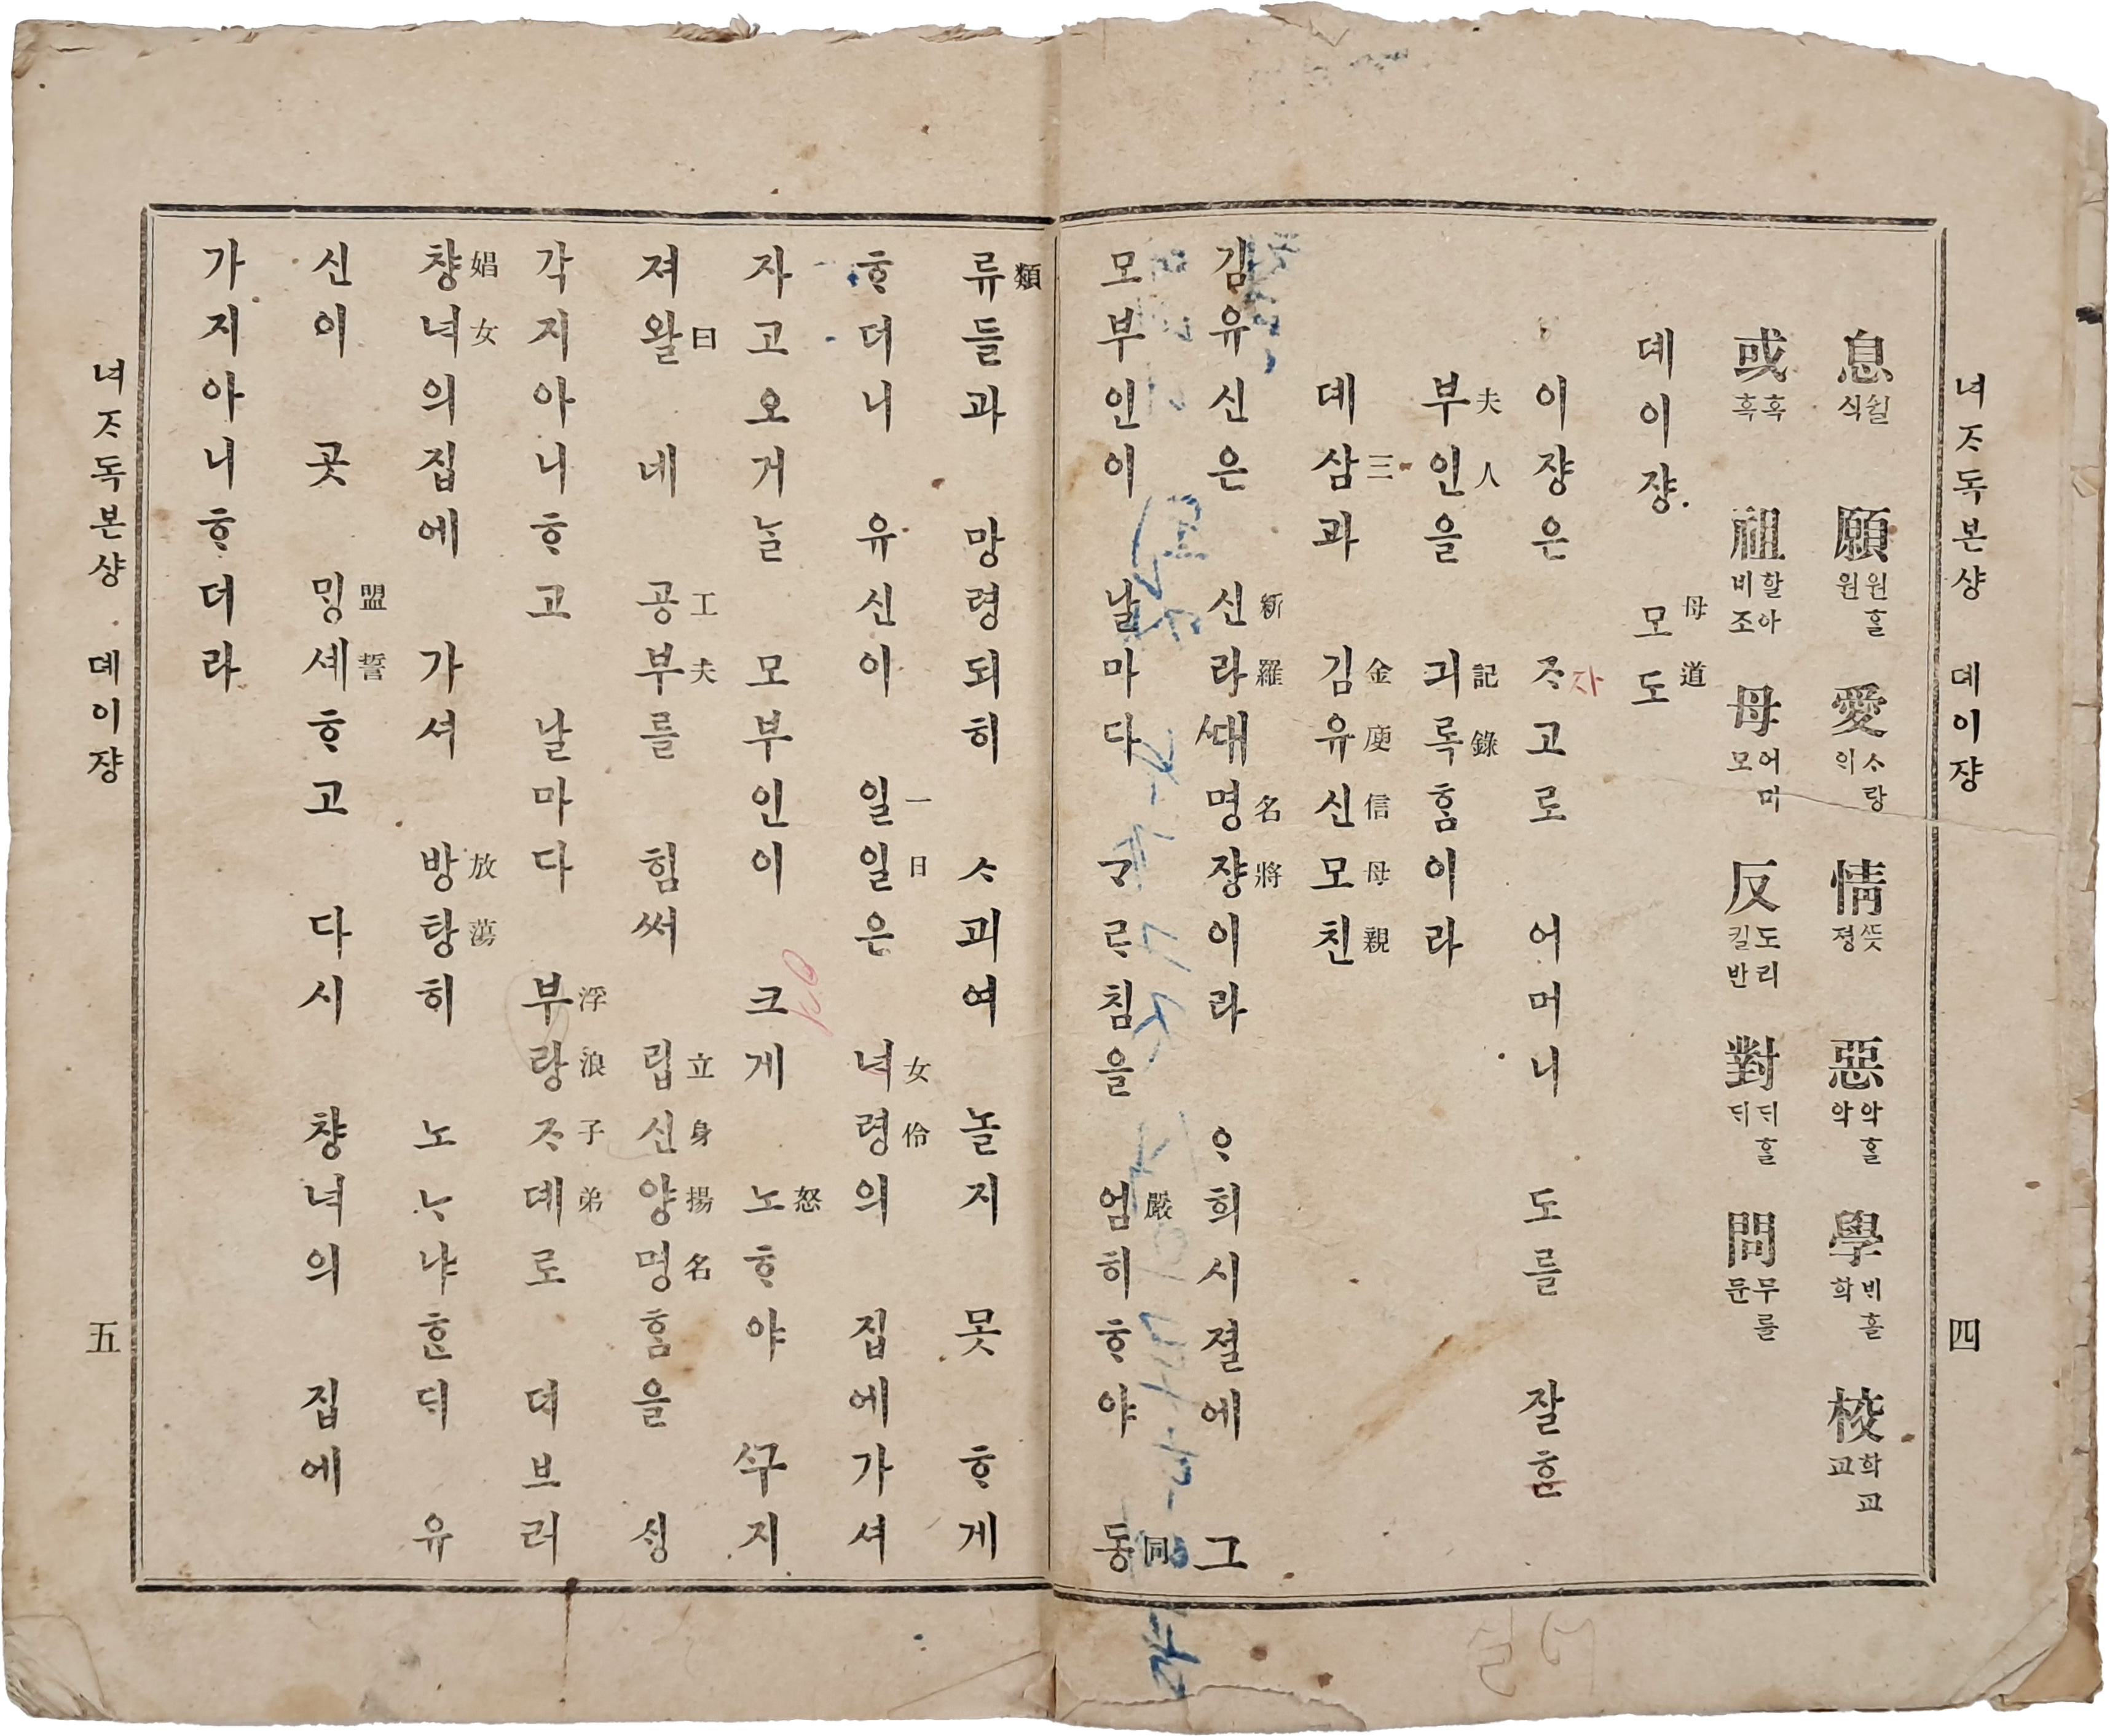 녀ᄌᆞ독본샹 뎨이쟝 四
息 쉴식 願 원ᄒᆞᆯ원 愛 ᄉᆞ랑ᄋᆡ 情 ᄯᅳᆺ졍 惡 악ᄒᆞᆯ악 學 ᄇᆡ홀학 校 학교교
或 혹혹 祖 할아비조 母 어미모 反 도리킬반 對 ᄃᆡᄒᆞᆯᄃᆡ 問 무를문
뎨이쟝 모母도道
이쟝은 ᄌᆞ고로 어머니 도를 잘ᄒᆞᆫ
자
부夫인人을 긔記록錄ᄒᆞᆷ이라
뎨삼三과 김金유庾신信모母친親
김유신은 신新라羅ᄯᅢ명名쟝將이라 ᄋᆞ희시졀에 그
모부인이 날마다 ᄀᆞᄅᆞ침을 엄嚴히ᄒᆞ야 동同
류類들과 망령되히 ᄉᆞ괴여 놀지 못 ᄒᆞ게
ᄒᆞ더니 유신이 일一일日은 녀女령伶의 집에가셔
자고오거ᄂᆞᆯ 모부인이 크게 노怒ᄒᆞ야 ᄭᅮ지
져왈曰 네 공工부夫를 힘써 립立신身양揚명名ᄒᆞᆷ을 ᄉᆡᆼ
각지아니ᄒᆞ고 날마다 부浮랑浪ᄌᆞ子뎨弟로 더브러
챵娼녀女의집에 가셔 방放탕蕩히 노ᄂᆞ냐ᄒᆞᆫᄃᆡ 유
신이 곳 ᄆᆡᆼ盟셰誓ᄒᆞ고 다시 챵녀의 집에
가지아니ᄒᆞ더라
녀ᄌᆞ독본샹 뎨이쟝 五